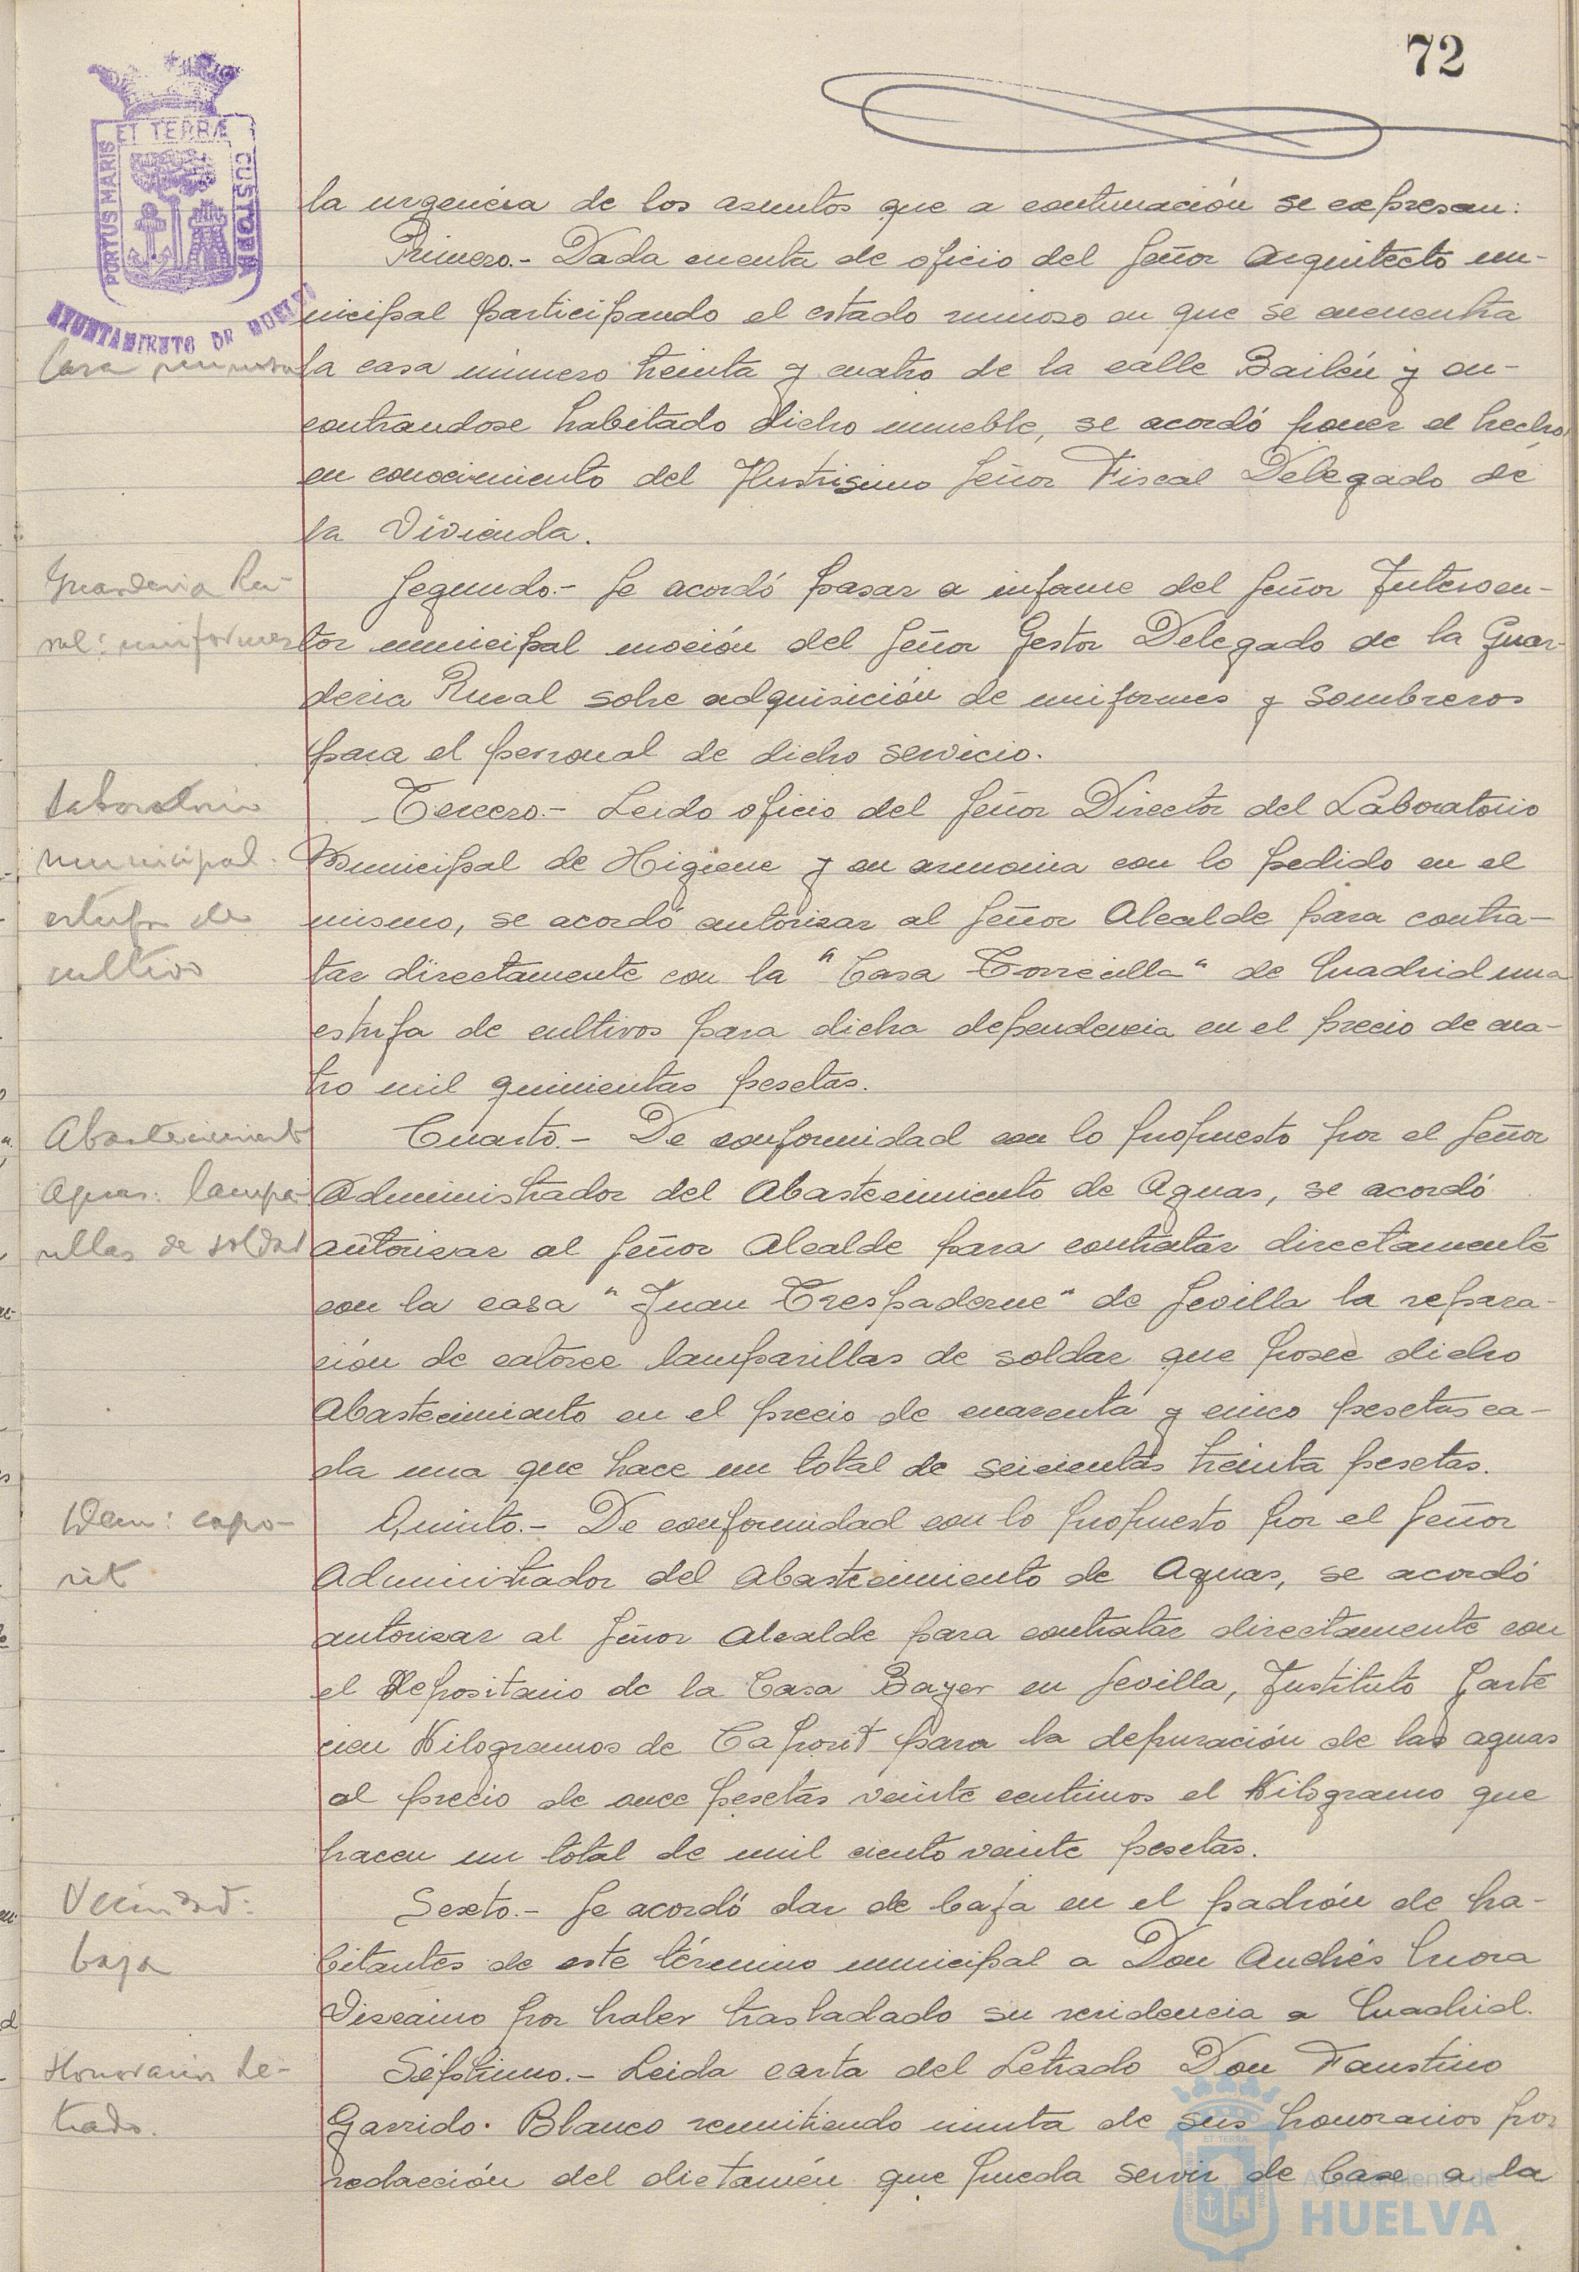 72
ET TERRÆ
PORTUS MARIS
CUSTODIA
AYUNTAMIENTO DE HUELVA
la urgencia de los asuntos que a continuación se expresan:
Primero.- Dada cuenta de oficio del Señor Arquitecto mu-
nicipal participando el estado ruinoso en que se encuentra
Casa ruinosa
la casa número treinta y cuatro de la calle Bailén y en-
contrandose habitado dicho inmueble, se acordó poner el hecho
en conocimiento del Ilustrisimo Señor Fiscal Delegado de
la Vivienda.
Guarderia Ru-
ral: uniformes
Segundo.- Se acordó pasar a informe del Señor Interven-
tor municipal moción del Señor Gestor Delegado de la Guar-
deria Rural sobre adquisición de uniformes y sombreros
para el personal de dicho servicio.
Laboratorio
municipal.
estufa de
cultivo
Tercero.- Leido oficio del Señor Director del Laboratorio
Municipal de Higiene y en armonia con lo pedido en el
mismo, se acordó autorizar al Señor Alcalde para contra-
tar directamente con la "Casa Torrecilla" de Madrid una
estufa de cultivos para dicha dependencia en el precio de cua-
tro mil quinientas pesetas.
Abastecimiento
Aguas: lampa-
rillas de soldar
Cuarto.- De conformidad con lo propuesto por el Señor
Administrador del Abastecimiento de Aguas, se acordó
autorizar al Señor Alcalde para contratar directamente
con la casa "Juan Trespaderne" de Sevilla la repara-
ción de catorce lamparillas de soldar que posee dicho
Abastecimiento en el precio de cuarenta y cinco pesetas ca-
da una que hace un total de seicientas treinta pesetas.
Idem: capo-
rit
Quinto.- De conformidad con lo propuesto por el Señor
Administrador del Abastecimiento de Aguas, se acordó
autorizar al Señor Alcalde para contratar directamente con
el Depositario de la Casa Bayer en Sevilla, Instituto
cien Kilogramos de Caporit para la depuración de las aguas
al precio de once pesetas veinte centimos el Kilogramo que
hacen un total de mil ciento veinte pesetas.
Vecindad:
baja
Sexto.- Se acordó dar de baja en el padrón de ha-
bitantes de este término municipal a Don Andrés Mora
Viscaino por haber trasladado su residencia a Madrid.
Honorarios Le-
trado.
Séptimo.- Leida carta del Letrado Don Faustino
Garrido Blanco remitiendo minuta de sus honorarios por
redacción del dictamén que pueda servir de base a la
Ayuntamiento de
HUELVA